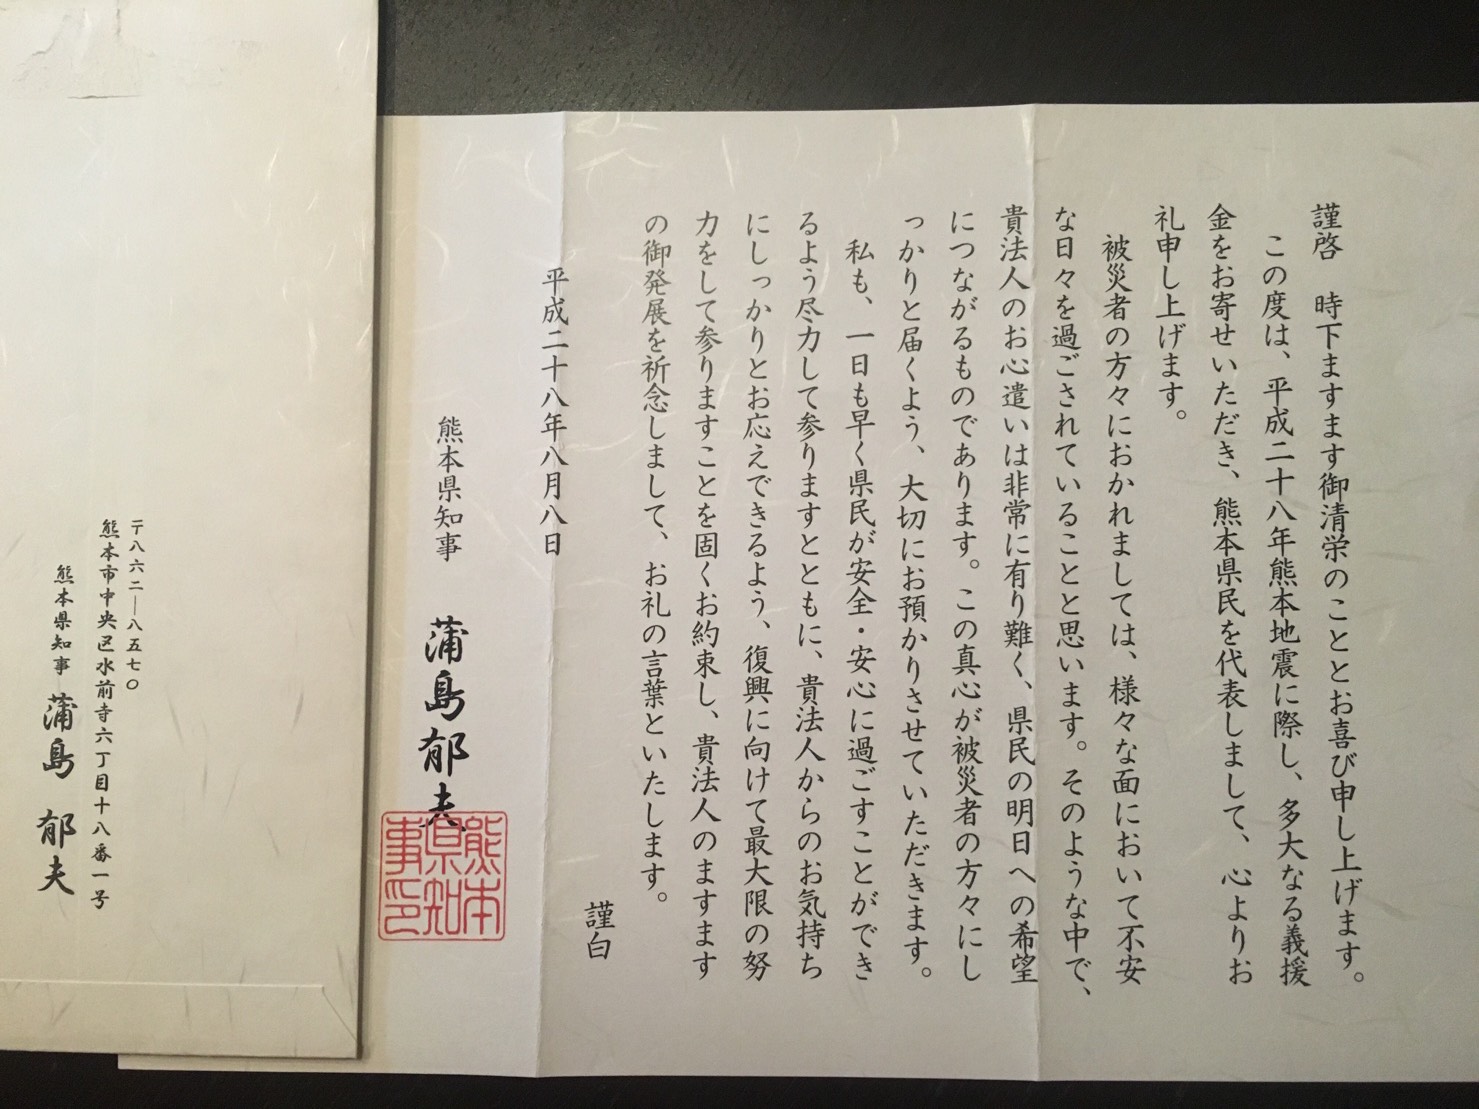 謹啓　時下ますます御清栄のこととお喜び申し上げます。
この度は、平成二十八年熊本地震に際し、多大なる義援
金をお寄せいただき、熊本県民を代表しまして、心よりお
礼申し上げます。
被災者の方々におかれましては、様々な面において不安
な日々を過ごされていることと思います。そのような中で、
貴法人のお心遣いは非常に有り難く、県民の明日への希望
につながるものであります。この真心が被災者の方々にし
っかりと届くよう、大切にお預かりさせていただきます。
私も、一日も早く県民が安全・安心に過ごすことができ
るよう尽力して参りますとともに、貴法人からのお気持ち
にしっかりとお応えできるよう、復興に向けて最大限の努
力をして参りますことを固くお約束し、貴法人のますます
の御発展を祈念しまして、お礼の言葉といたします。
謹白
平成二十八年八月八日
熊本県知事　蒲島郁夫
熊本
県知
事印
〒八六二―八五七〇
熊本市中央区水前寺六丁目十八番一号
熊本県知事　蒲島　郁夫